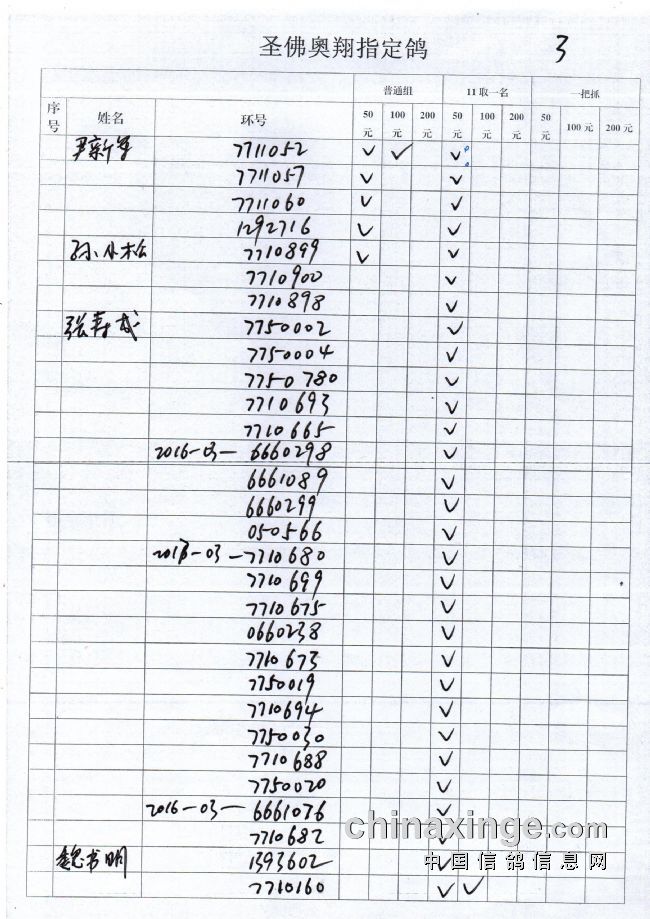 圣佛奥翔指定鸽 3
普通组 11取一名 一把抓
序号 姓名 环号 50元 100元 200元 50元 100元 200元 50元 100元 200元
尹新军 7711052 ✓ ✓ ✓
7711057 ✓ ✓
7711060 ✓ ✓
1292716 ✓ ✓
孙小松 7710899 ✓ ✓
7710900 ✓
7710898 ✓
张春成 7750002 ✓
7750004 ✓
7750780 ✓
7710693 ✓
7710665 ✓
2016-03- 6660298 ✓
6661089 ✓
6660299 ✓
050566 ✓
2017-03-7710680 ✓
7710699 ✓
7710675 ✓
0660238 ✓
7710673 ✓
7750019 ✓
7710694 ✓
7750030 ✓
7710688 ✓
7750020 ✓
2016-03-6661076 ✓
7710682 ✓
魏书明 1393602 ✓
7710160 ✓ ✓
chinaxinge.com
中国信鸽信息网